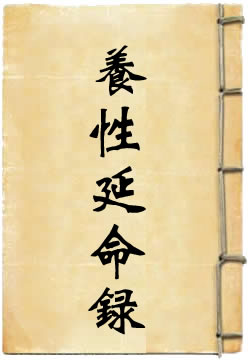 養性延命録